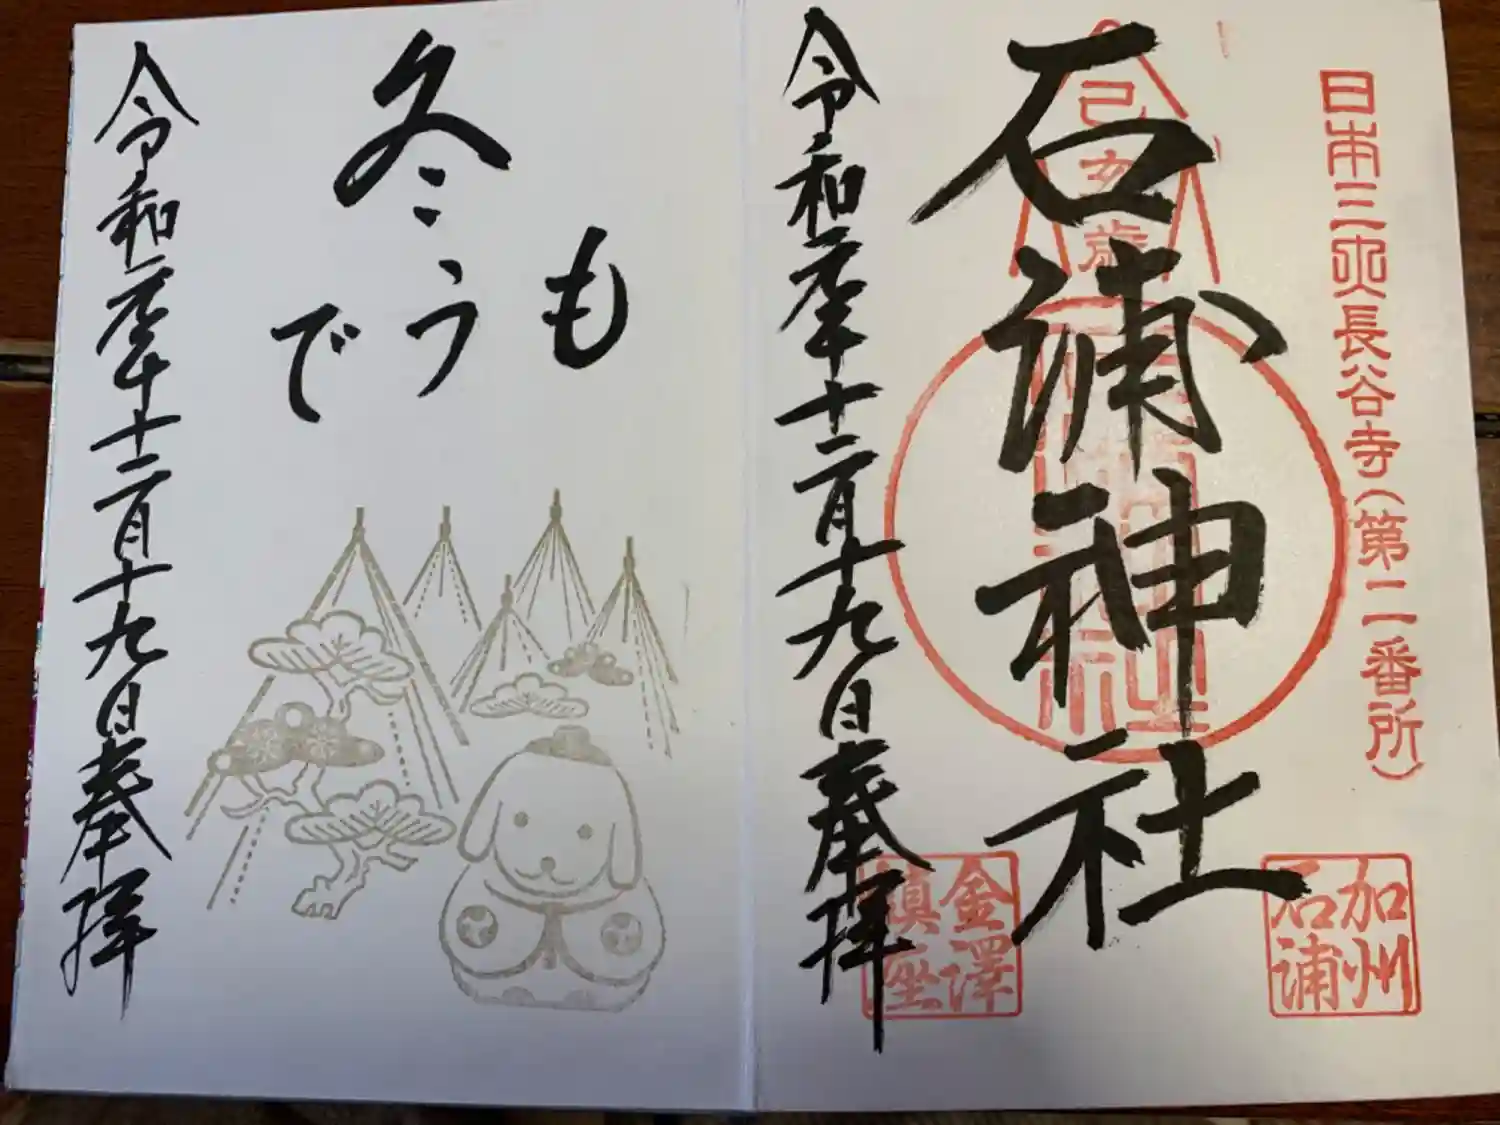 日本三大長谷寺(第二番所)
己亥歳
石浦神社
石浦神社
加州
石浦
金澤
鎮座
令和元年十二月十九日奉拝
冬
もうで
令和元年十二月十九日奉拝